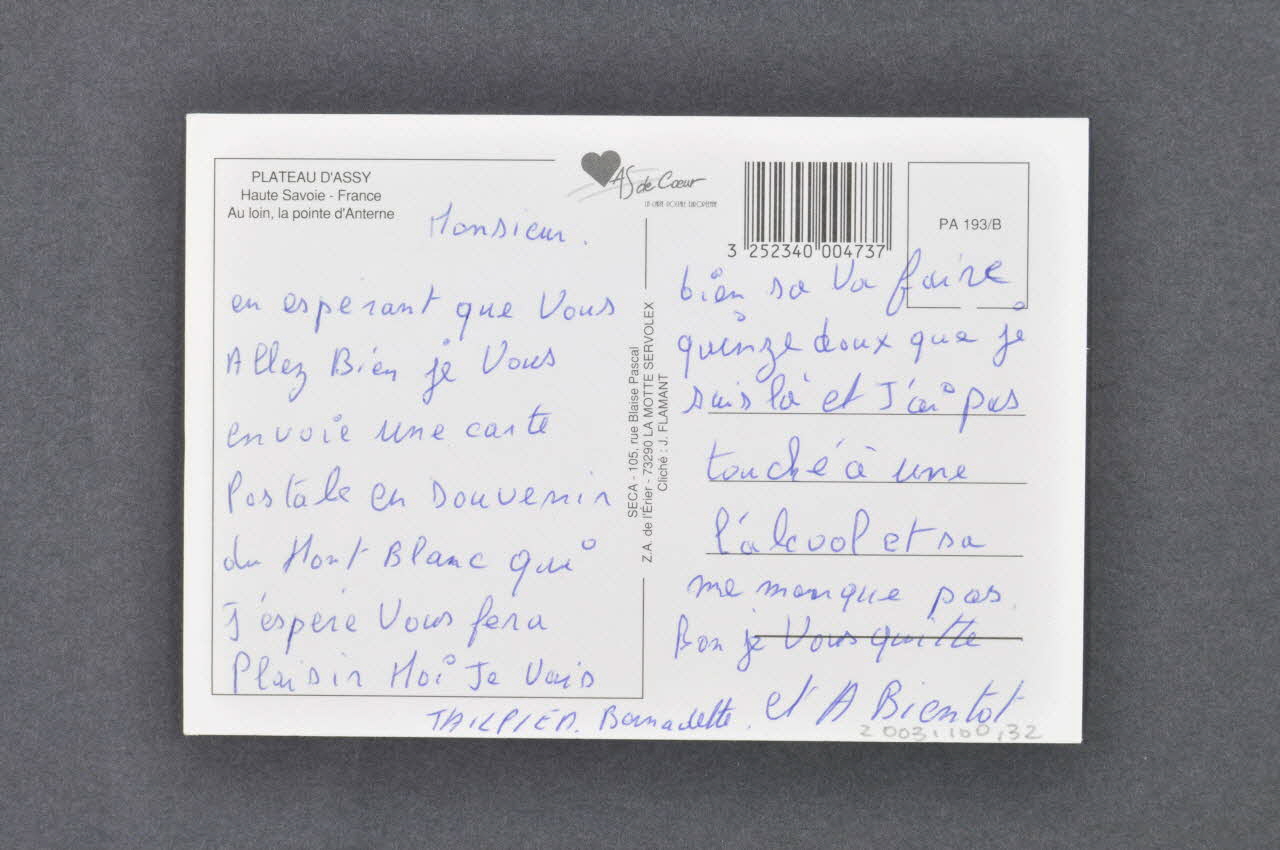 PLATEAU D'ASSY
Haute Savoie - France
Au loin, la pointe d'Anterne
AS de Cœur
LA CARTE POSTALE EUROPÉENNE
3 252340 004737
PA 193/B
Monsieur.
en espérant que Vous
Allez Bien je Vous
envoie une carte
Postale en souvenir
du Mont Blanc qui
J'espère Vous fera
Plaisir Moi Je Vais
bien sa Va faire
quinze doux que je
suis là et J'ai pas
touché à une
l'alcool et sa
me manque pas.
Bon je Vous quitte
et A Bientot
TAILPIED. Bernadette.
SECA - 105, rue Blaise Pascal
Z.A. de l'Érier - 73290 LA MOTTE SERVOLEX
Cliché : J. FLAMANT
2003.100.32